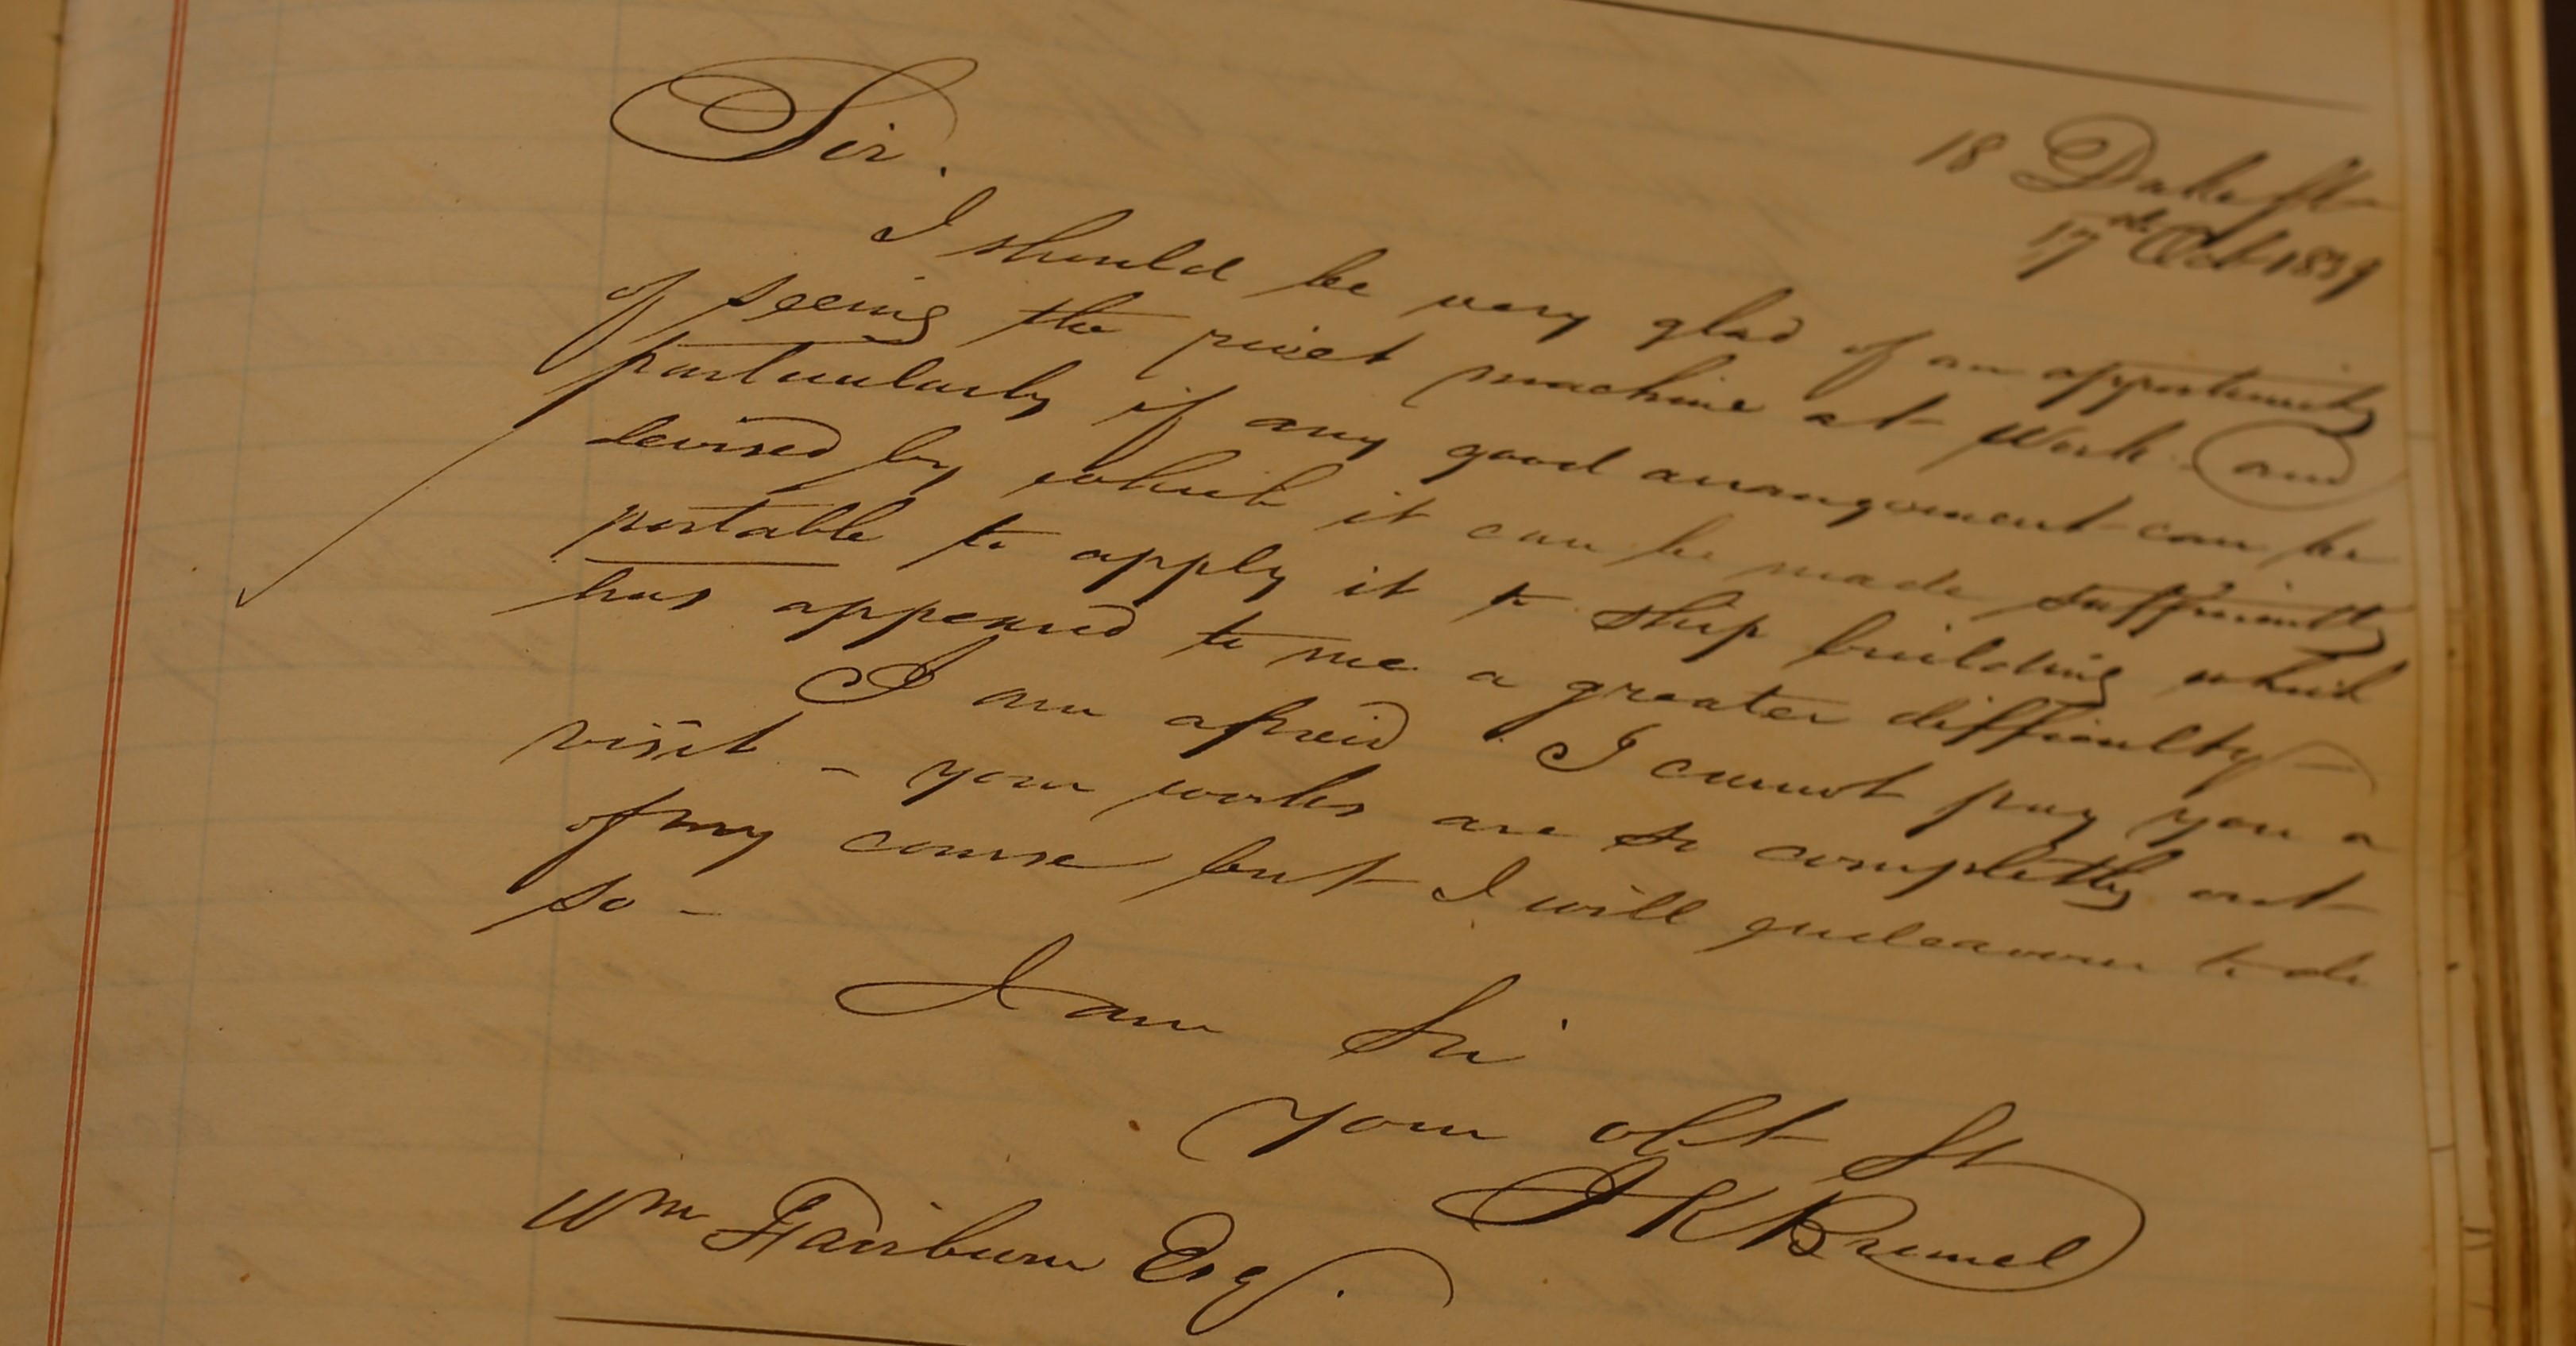 18 Duke St
17th Oct 1839
Sir.
I should be very glad of an opportunity
of seeing the rivet machine at work - and
particularly if any good arrangement can be
devised by which it can be made sufficiently
portable to apply it to ship building which
has appeared to me a greater difficulty -
I am afraid I cannot pay you a
visit - your works are so completely out
of my course but I will endeavour to do
so -
I am Sir
your obt St
I K Brunel
Wm Fairburn Esq.